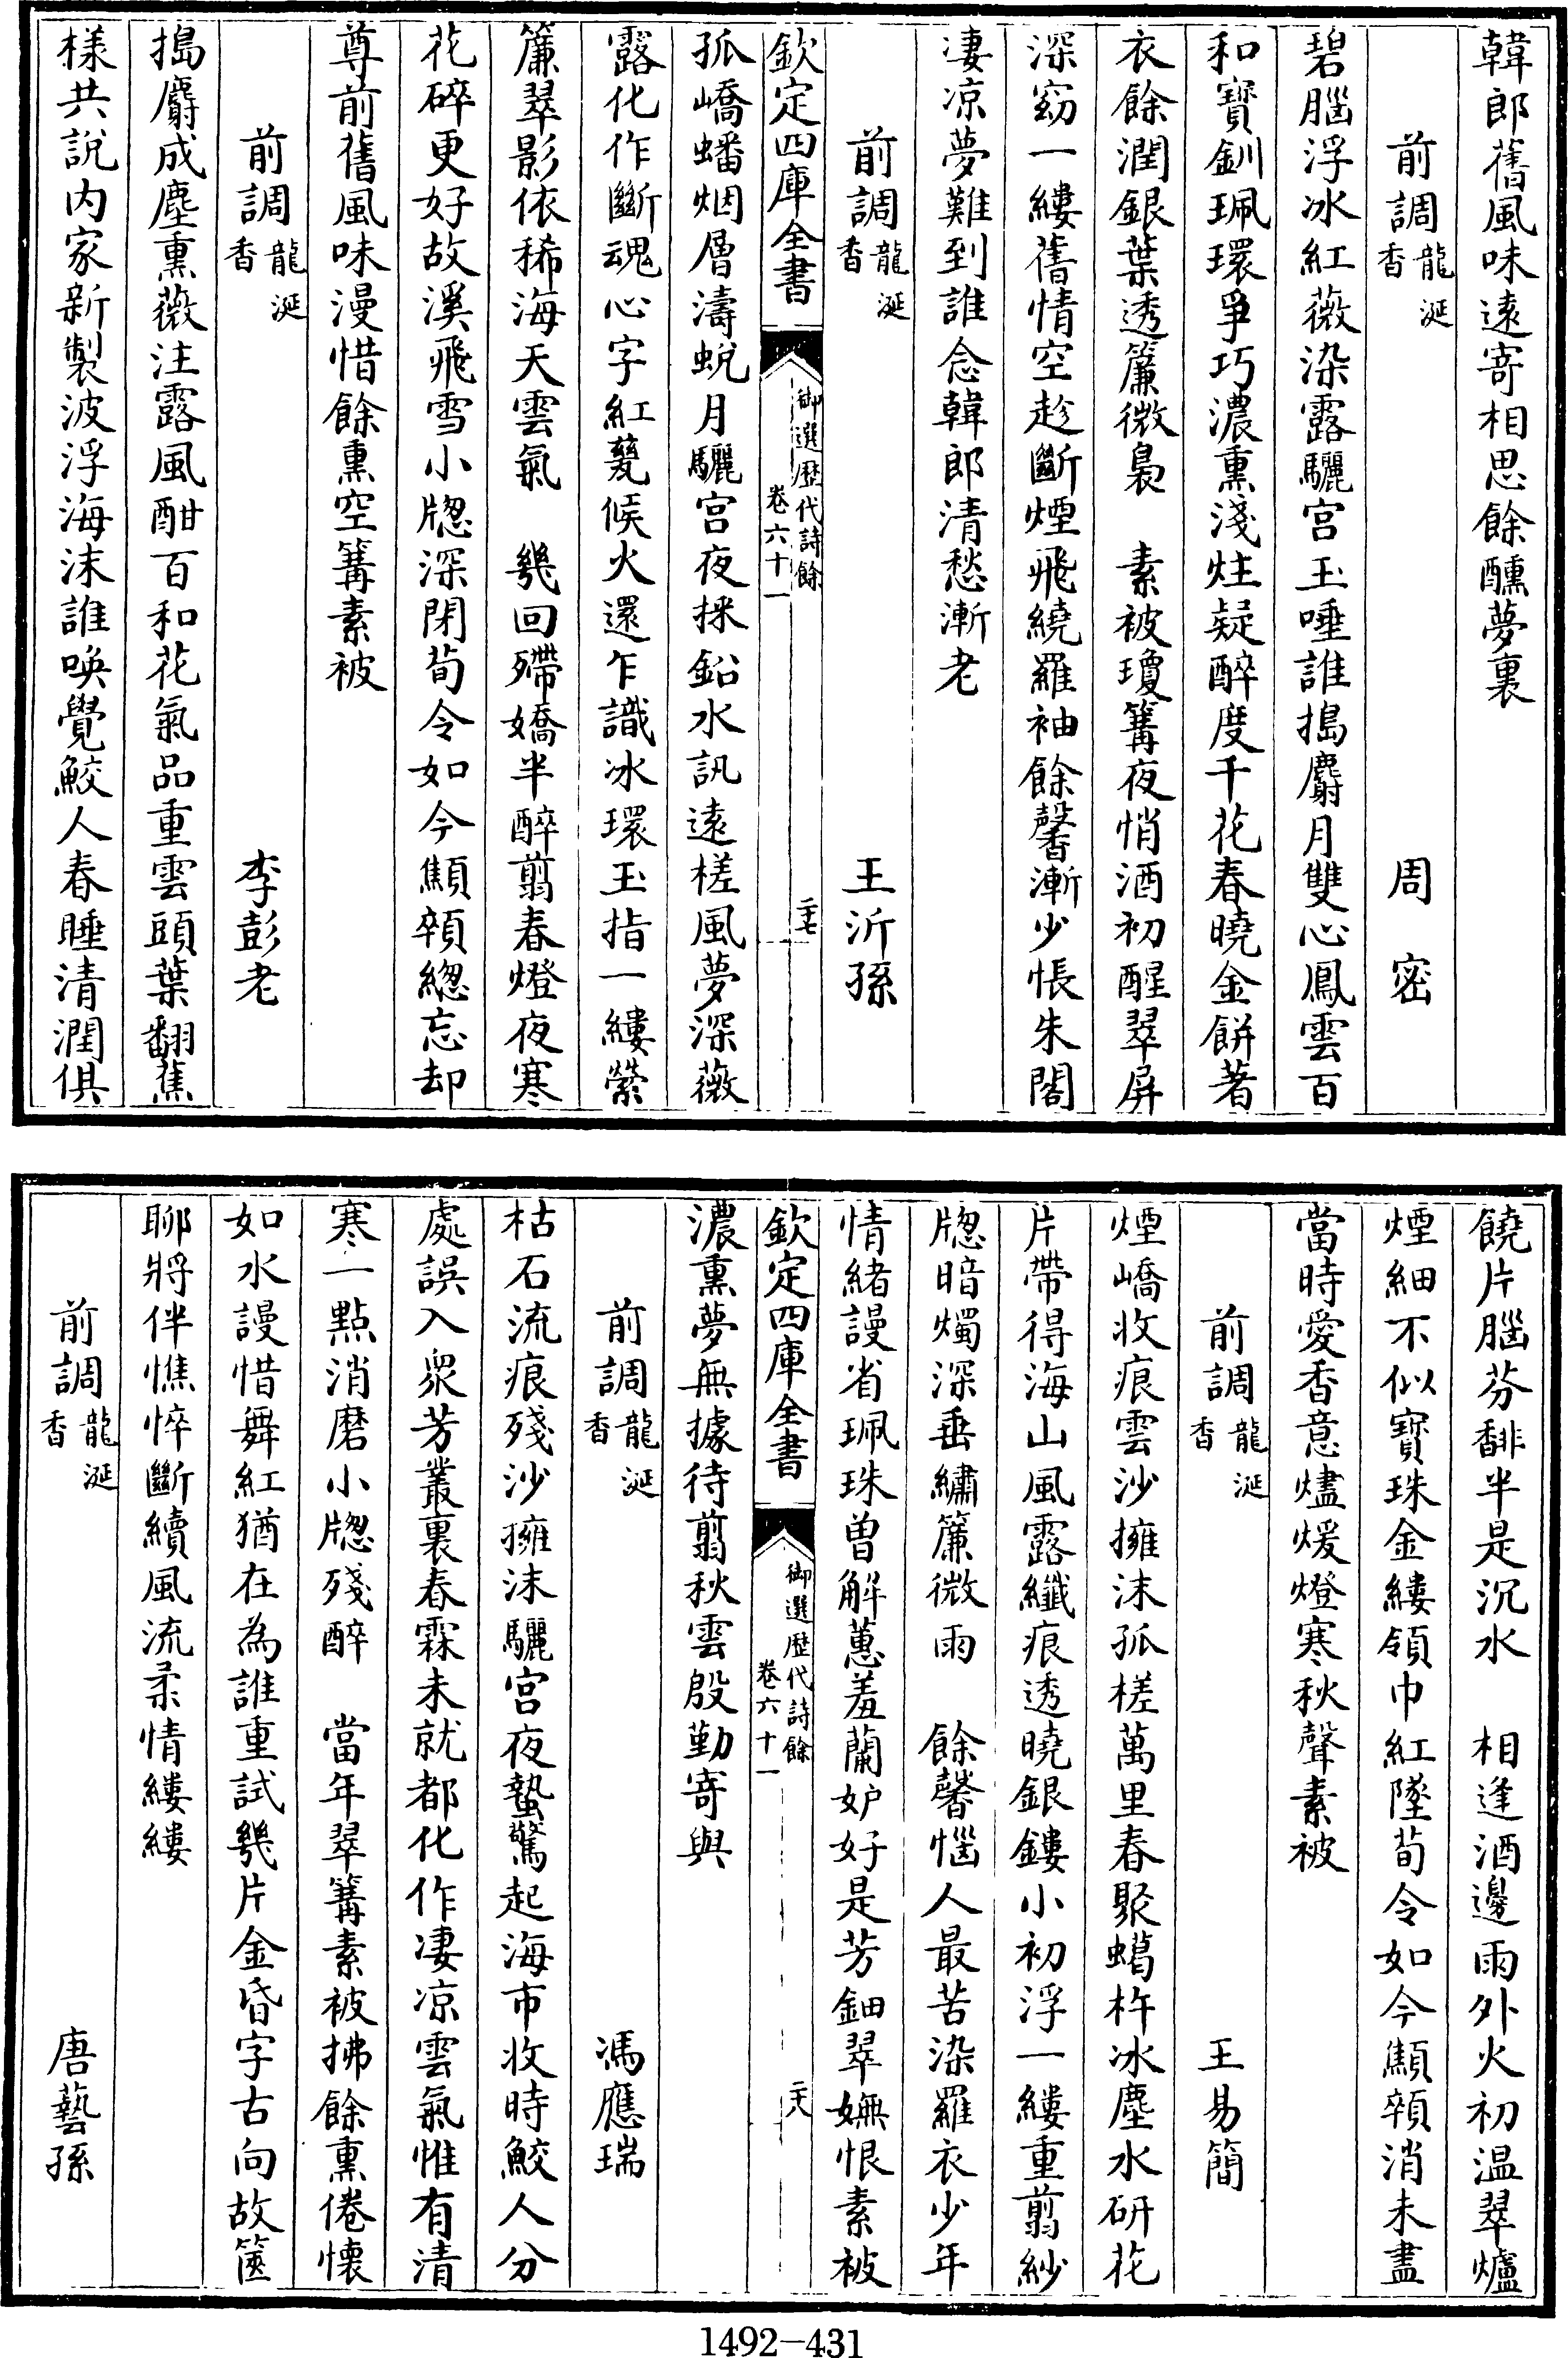 韓郎舊風味遠寄相思餘醺夢裏
前調龍涎香　周密
碧腦浮冰紅薇染露驪宮玉唾誰搗麝月雙心鳳雲百
和寶釧珮環爭巧濃熏淺炷疑醉度千花春曉金餅著
衣餘潤銀葉透簾微裊　素被瓊篝夜悄酒初醒翠屏
深窈一縷舊情空趁斷煙飛繞羅袖餘馨漸少悵朱閣
凄凉夢難到誰念韓郎清愁漸老
前調龍涎香　王沂孫
欽定四庫全書　御選歷代詩餘　卷六十一　二十七
孤嶠蟠烟層濤蛻月驪宮夜採鉛水訊遠槎風夢深薇
露化作斷魂心字紅甆候火還乍識冰環玉指一縷縈
簾翠影依稀海天雲氣　幾回殢嬌半醉翦春燈夜寒
花碎更好故溪飛雪小牎深閉荀令如今顦顇緫忘却
尊前舊風味漫惜餘熏空篝素被
前調龍涎香　李彭老
搗麝成塵熏薇注露風酣百和花氣品重雲頭葉翻蕉
樣共說內家新製波浮海沫誰喚覺鮫人春睡清潤俱
饒片腦芬馡半是沉水　相逢酒邊雨外火初温翠爐
煙細不似寶珠金縷領巾紅墜荀令如今顦顇消未盡
當時愛香意燼煖燈寒秋聲素被
前調龍涎香　王易簡
煙嶠收痕雲沙擁沫孤槎萬里春聚蠟杵冰塵水研花
片帶得海山風露纖痕透曉銀鏤小初浮一縷重翦紗
牎暗燭深垂繡簾微雨　餘馨惱人最苦染羅衣少年
情緒謾省珮珠曾解蕙羞蘭妒好是芳鈿翠嫵恨素被
欽定四庫全書　御選歷代詩餘　卷六十一　二十八
濃熏夢無據待翦秋雲殷勤寄與
前調龍涎香　馮應瑞
枯石流痕殘沙擁沫驪宮夜蟄驚起海市收時鮫人分
處誤入衆芳叢裏春霖未就都化作凄凉雲氣惟有清
寒一點消磨小牎殘醉　當年翠篝素被拂餘熏倦懷
如水謾惜舞紅猶在為誰重試幾片金昏字古向故篋
聊將伴憔悴斷續風流柔情縷縷
前調龍涎香　唐藝孫
1492-431